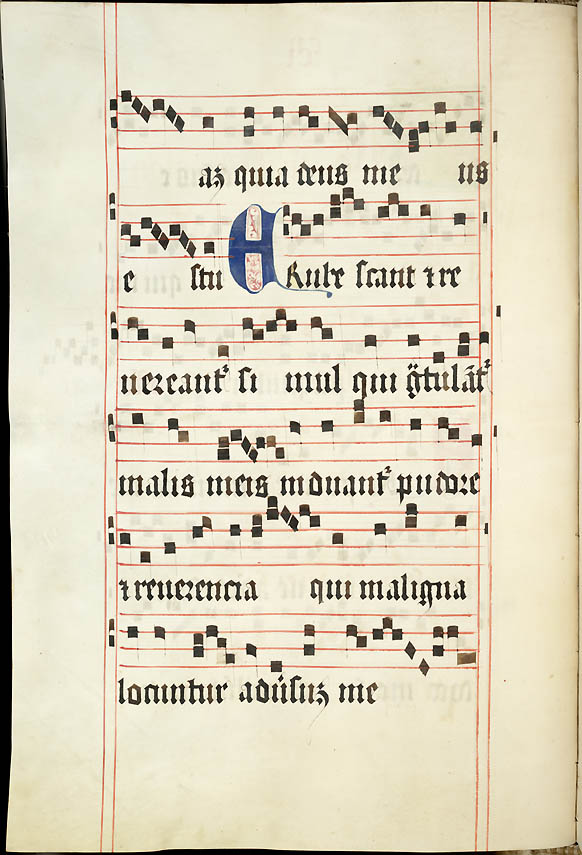 az quia deus me us
e stu ERube scant ⁊ re
uereantᷣ si mul qui g̃tulãtᷣ
malis meis induantᷣ pudore
⁊ reuerencia qui maligna
locuntur adũsuz me